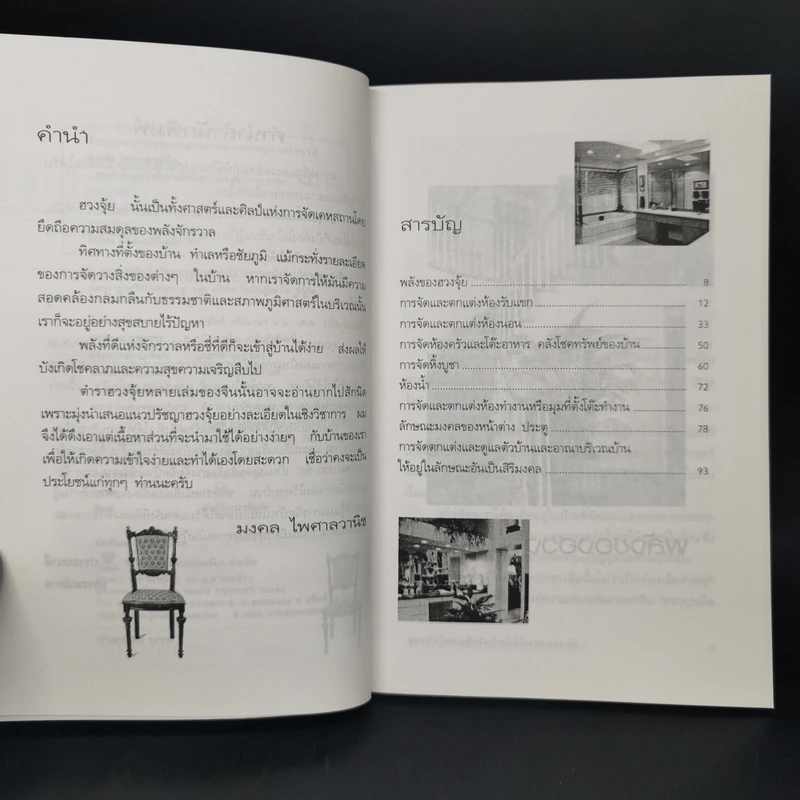 คำนำ
ฮวงจุ้ย นั้นเป็นทั้งศาสตร์และศิลป์แห่งการจัดเคหสถานโดย
ยึดถือความสมดุลของพลังจักรวาล
ทิศทางที่ตั้งของบ้าน ทำเลหรือชัยภูมิ แม้กระทั่งรายละเอียด
ของการจัดวางสิ่งของต่างๆ ในบ้าน หากเราจัดการให้มันมีความ
สอดคล้องกลมกลืนกับธรรมชาติและสภาพภูมิศาสตร์ในบริเวณนั้น
เราก็จะอยู่อย่างสุขสบายไร้ปัญหา
พลังที่ดีแห่งจักรวาลหรือชี่ที่ดีก็จะเข้าสู่บ้านได้ง่าย ส่งผลให้
บังเกิดโชคลาภและความสุขความเจริญสืบไป
ตำราฮวงจุ้ยหลายเล่มของจีนนั้นอาจจะอ่านยากไปสักนิด
เพราะมุ่งนำเสนอแนวปรัชญาฮวงจุ้ยอย่างละเอียดในเชิงวิชาการ ผม
จึงได้ดึงเอาแต่เนื้อหาส่วนที่จะนำมาใช้ได้อย่างง่ายๆ กับบ้านของเรา
เพื่อให้เกิดความเข้าใจง่ายและทำได้เองโดยสะดวก เชื่อว่าคงจะเป็น
ประโยชน์แก่ทุกๆ ท่านนะครับ
มงคล ไพศาลวานิช
สารบัญ
พลังของฮวงจุ้ย 8
การจัดและตกแต่งห้องรับแขก 12
การจัดและตกแต่งห้องนอน 33
การจัดห้องครัวและโต๊ะอาหาร คลังโชคทรัพย์ของบ้าน 50
การจัดหิ้งบูชา 60
ห้องน้ำ 72
การจัดและตกแต่งห้องทำงานหรือมุมที่ตั้งโต๊ะทำงาน 76
ลักษณะมงคลของหน้าต่าง ประตู 78
การจัดตกแต่งและดูแลตัวบ้านและอาณาบริเวณบ้าน
ให้อยู่ในลักษณะอันเป็นสิริมงคล 93